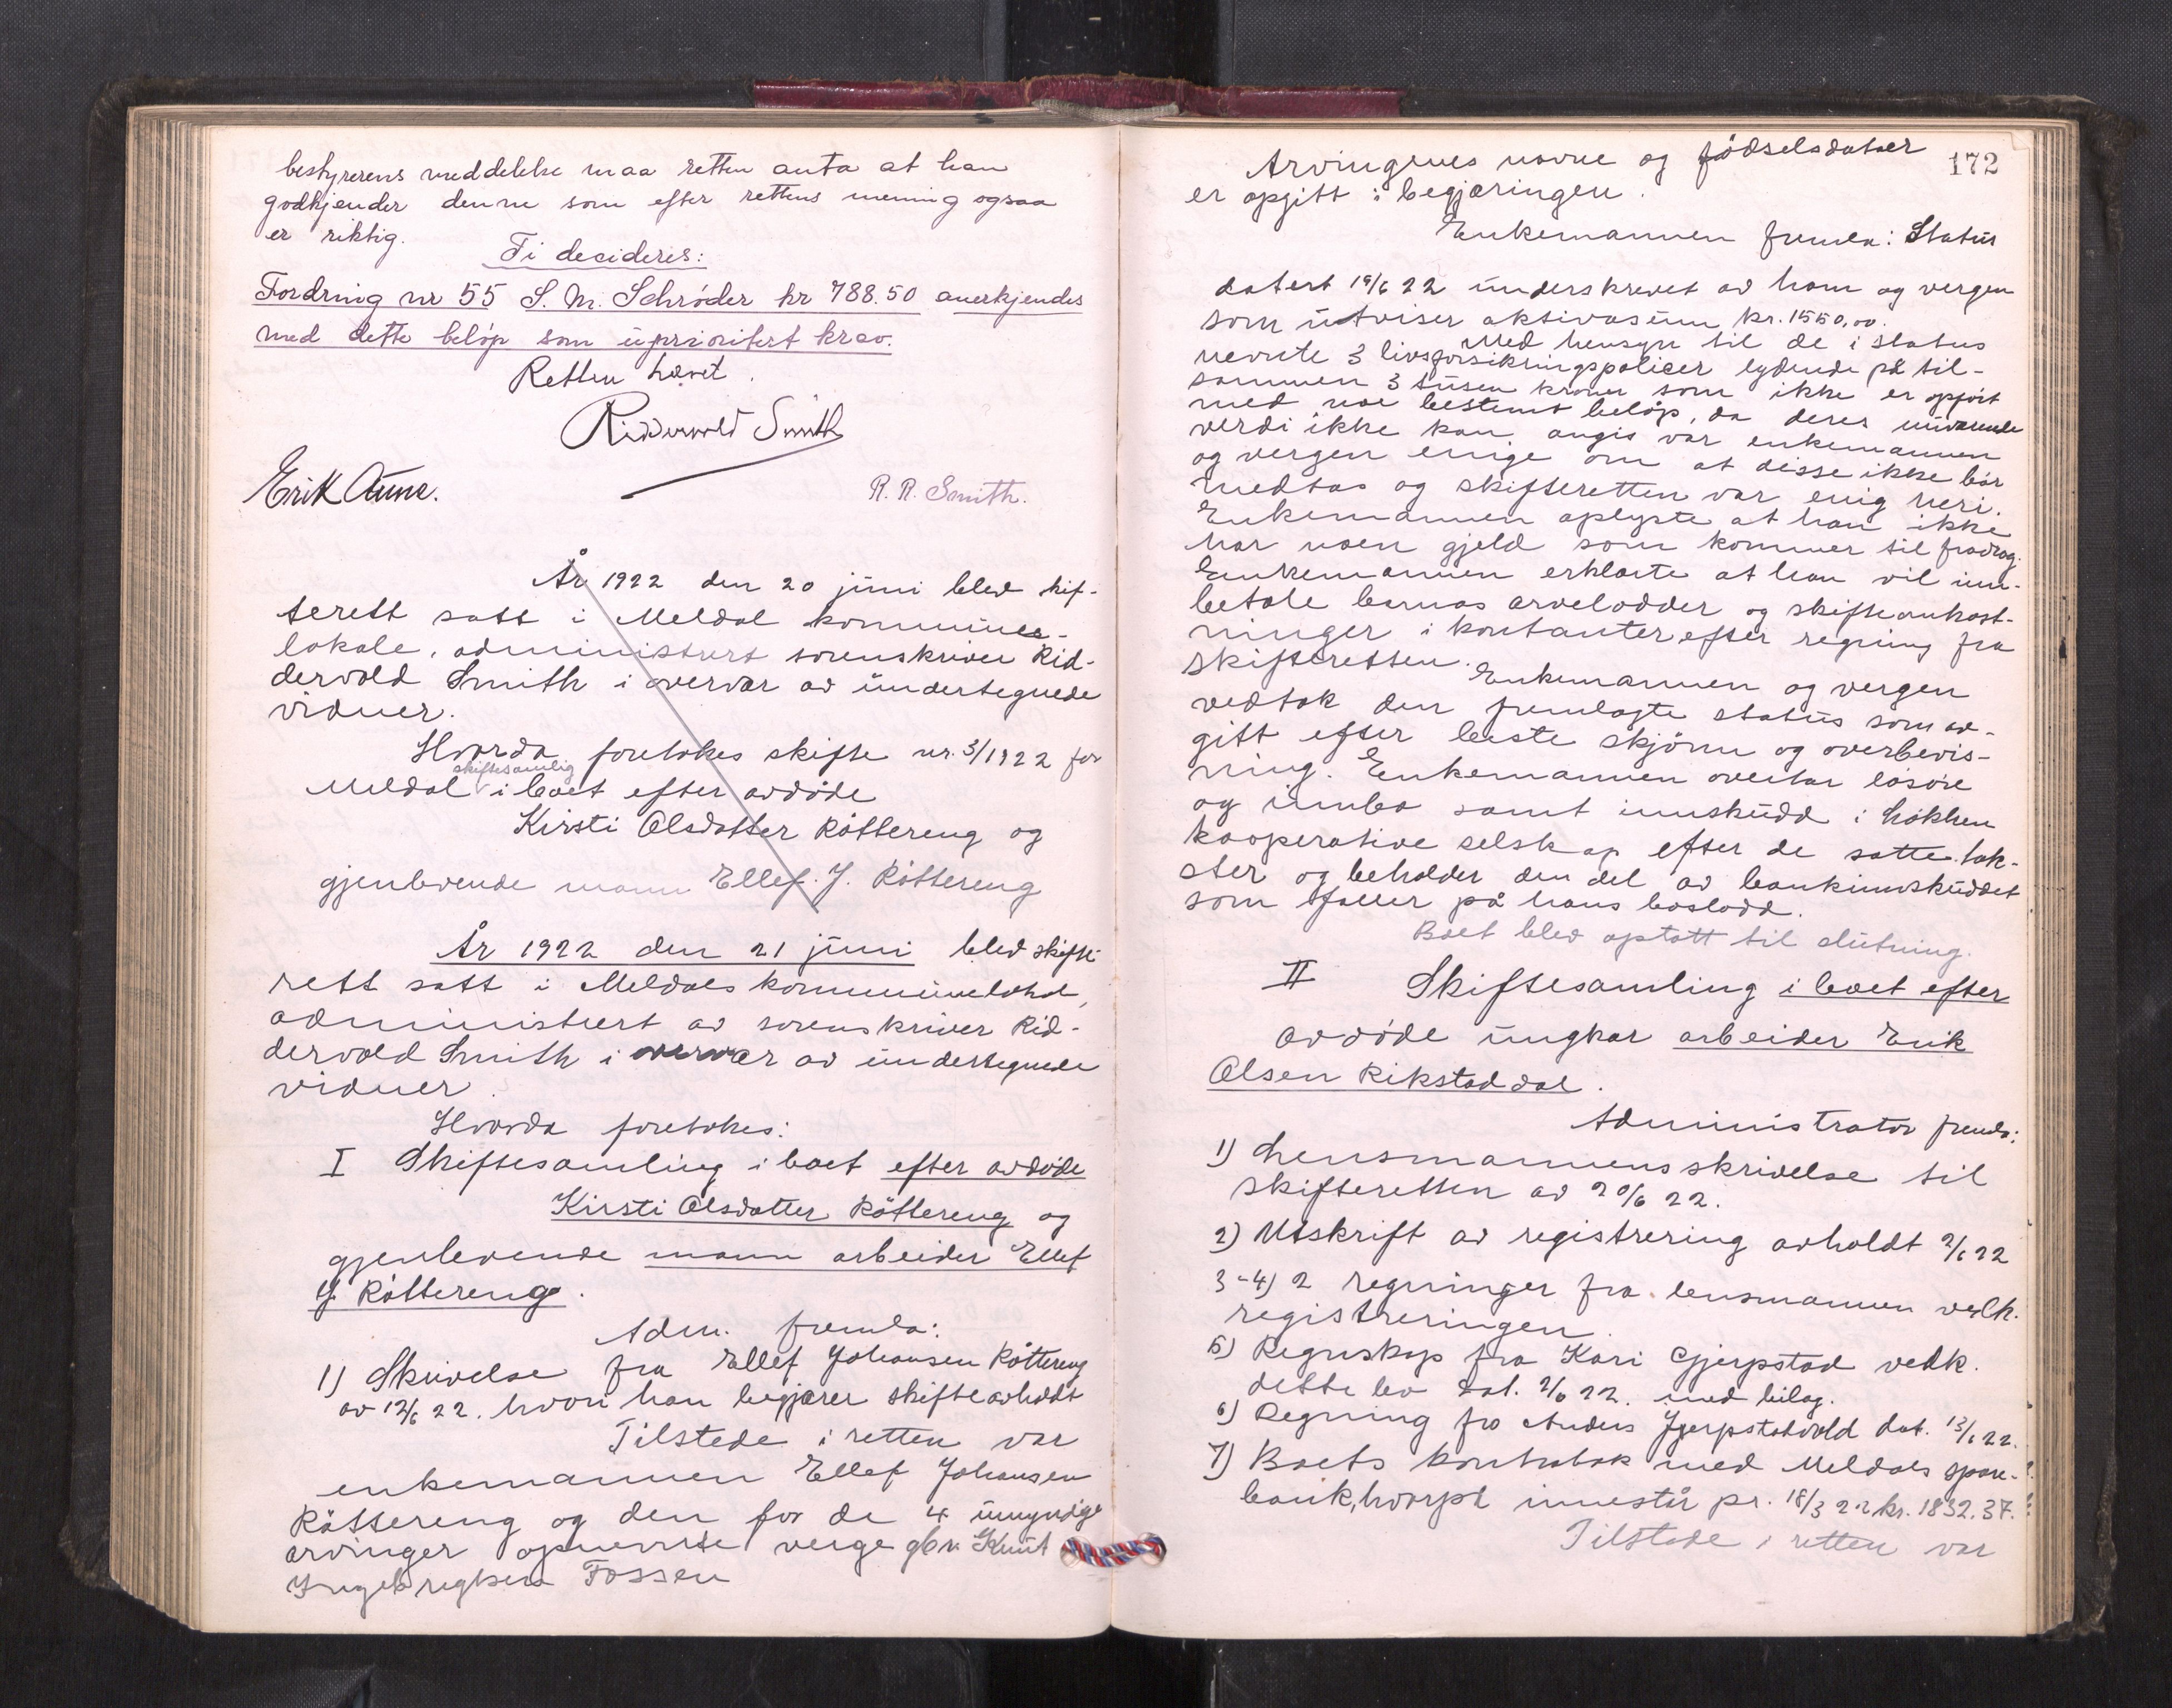 bestyrerens meddelelse maa retten anta at han
godkjender denne som efter rettens mening ogsaa
er riktig.
Ti decideres:
Fordring nr 55 S. M. Schrøder kr 788.50 anerkjendes
med dette beløp som uprioritert krav.
Retten hævet.
Ridderwold Smith
Erik Aune.
R. R. Smith.
År 1922 den 20 juni blev skif-
terett satt i Meldal kommune-
lokale, administrert sorenskriver Rid-
dervold Smith i overvær av undertegnede
vidner.
Hvorda foretokes skifte nr. 3/1922 for
skiftesamlig
Meldal i boet efter avdøde
Kirsti Olsdatter Røttereng og
gjenlevende mann Ellef J. Røttereng
År 1922 den 21 juni blev skifte-
rett satt i Meldals kommunelokal,
administrert av sorenskriver Rid-
dervold Smith i overvær av undertegnede
vidner.
Hvorda foretokes:
I Skiftesamling i boet efter avdøde
Kirsti Olsdatter Røttereng og
gjenlevende mann arbeider Ellef
J. Røttereng.
Adm. fremla:
1) Skrivelse fra Ellef Johansen Røttereng
av 12/6 22. hvori han begjærer skifte avholdt
Tilstede i retten var
enkemannen Ellef Johansen
Røttereng og den for de 4 umyndige
arvinger opnevnte verge gbr. Knut
Ingebrigtsen Fossen
172
Arvingenes navne og fødselsdatoer
er opgitt i begjæringen.
Enkemannen fremla: Status
datert 19/6 22 underskrevet av ham og vergen
som utviser aktivasum kr. 1550,00.
Med hensyn til de i status
nevnte 3 livsforsikringspolicer lydende på til-
sammen 3 tusen kroner som ikke er opført
med noe bestemt beløp, da deres nuværende
verdi ikke kan angis var enkemannen
og vergen enige om at disse ikke bør
medtas og skifteretten var enig heri.
Enkemannen oplyste at han ikke
har noen gjeld som kommer til fradrag.
Enkemannen erklærte at han vil inn-
betale barnas arvelodder og skifteomkost-
ninger i kontanter efter regning fra
skifteretten.
Enkemannen og vergen
vedtok den fremlagte status som av-
gitt efter beste skjønn og overbevis-
ning. Enkemannen overtar løsøre
og innbo samt innskudd i Løkken
kooperative selskap efter de satte tak-
ster og beholder den del av bankinnskuddet
som faller på hans boslodd.
Boet blev optatt til slutning.
II Skiftesamling i boet efter
avdøde ungkar arbeider Erik
Olsen Rikstaddal.
Administrator fremla:
1) Lensmannens skrivelse til
skifteretten av 20/6 22.
2) Utskrift av registrering avholdt 2/6 22
3-4) 2 regninger fra lensmannen vedk.
registreringen.
5) Regnskap fra Kari Gjerpstad vedk.
dette bo dat. 2/6 22. med bilag.
6) Regning fra Anders Gjerpstadvold dat. 13/6 22.
7) Boets kontrabok med Meldals spare-
bank, hvorpå innestår pr. 18/3 22 kr. 1832.37.
Tilstede i retten var